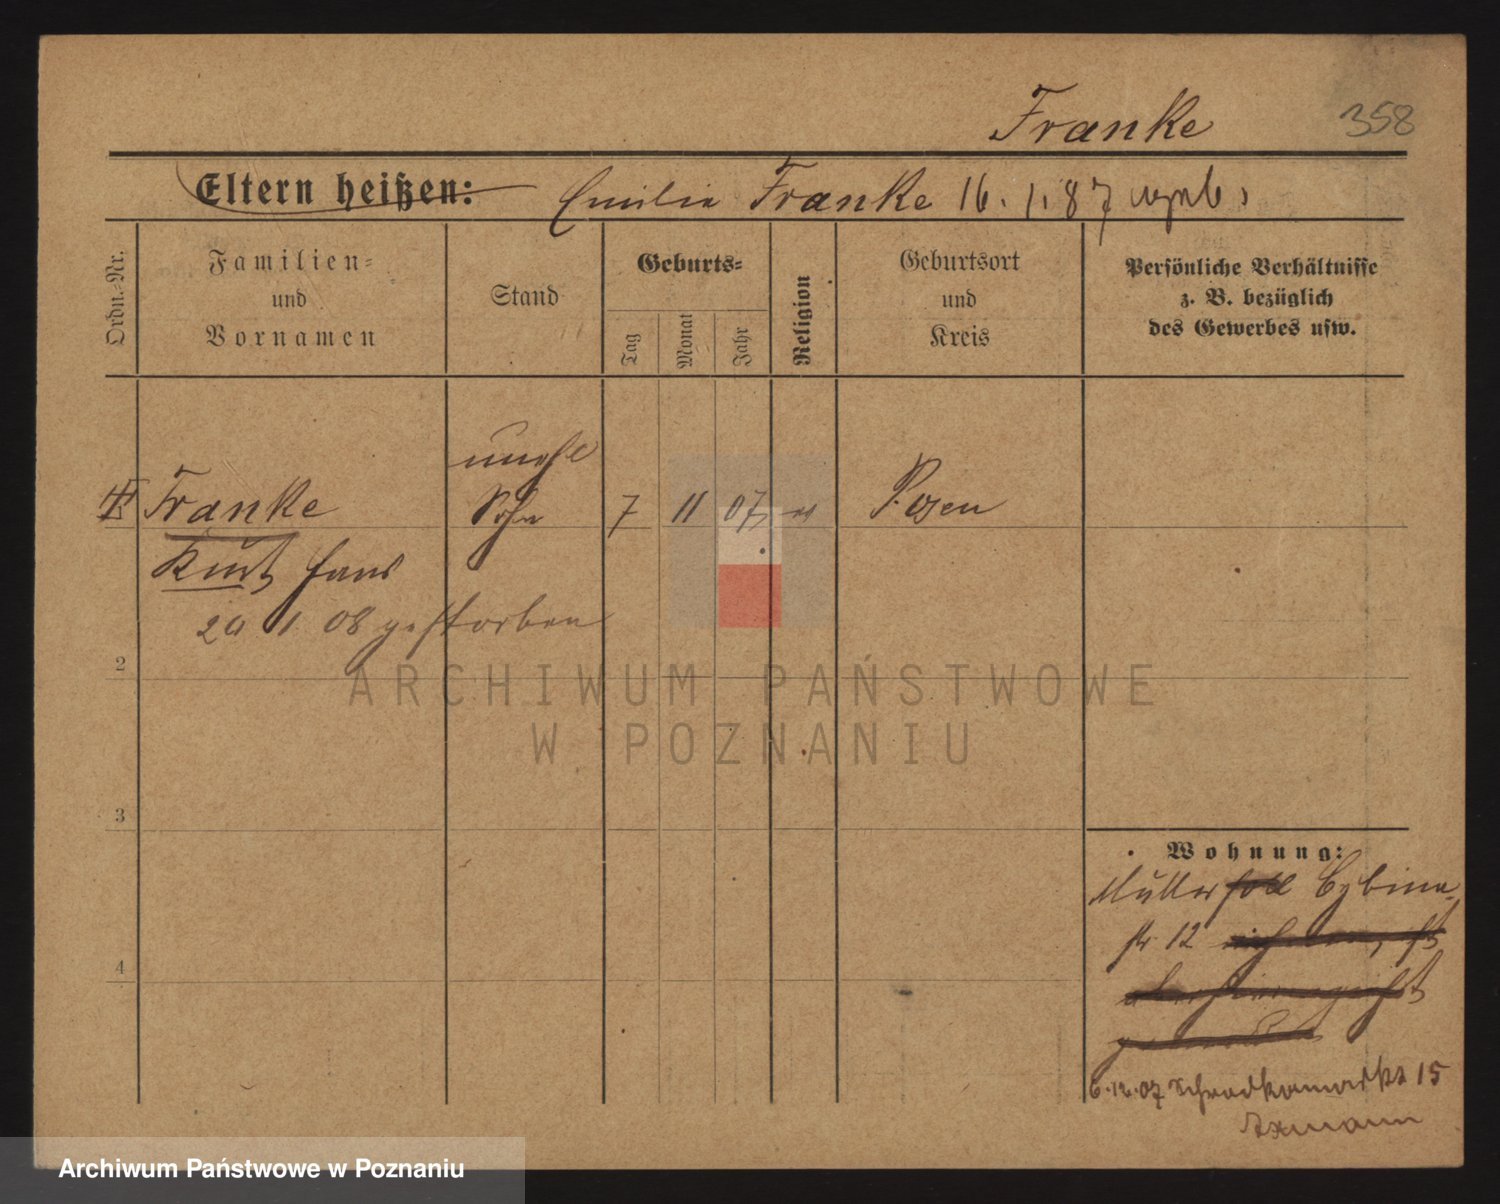 Franke 358
Eltern heißen: Emilie Franke 16. 1. 87
Ordn.-Nr.
Familien-
und
Vornamen
Stand
Geburts-
Tag
Monat
Jahr
Religion
Geburtsort
und
Kreis
Persönliche Verhältnisse
z. B. bezüglich
des Gewerbes usw.
unehl
Franke Sohn 7 11 07 Posen
Kurt Hans
20 1 08 gestorben
2
ARCHIWUM PAŃSTWOWE
W POZNANIU
3
Wohnung:
Müller Cybina
str 12
4
6.12.07 Schrodkamarkt 15
Axmann
Archiwum Państwowe w Poznaniu